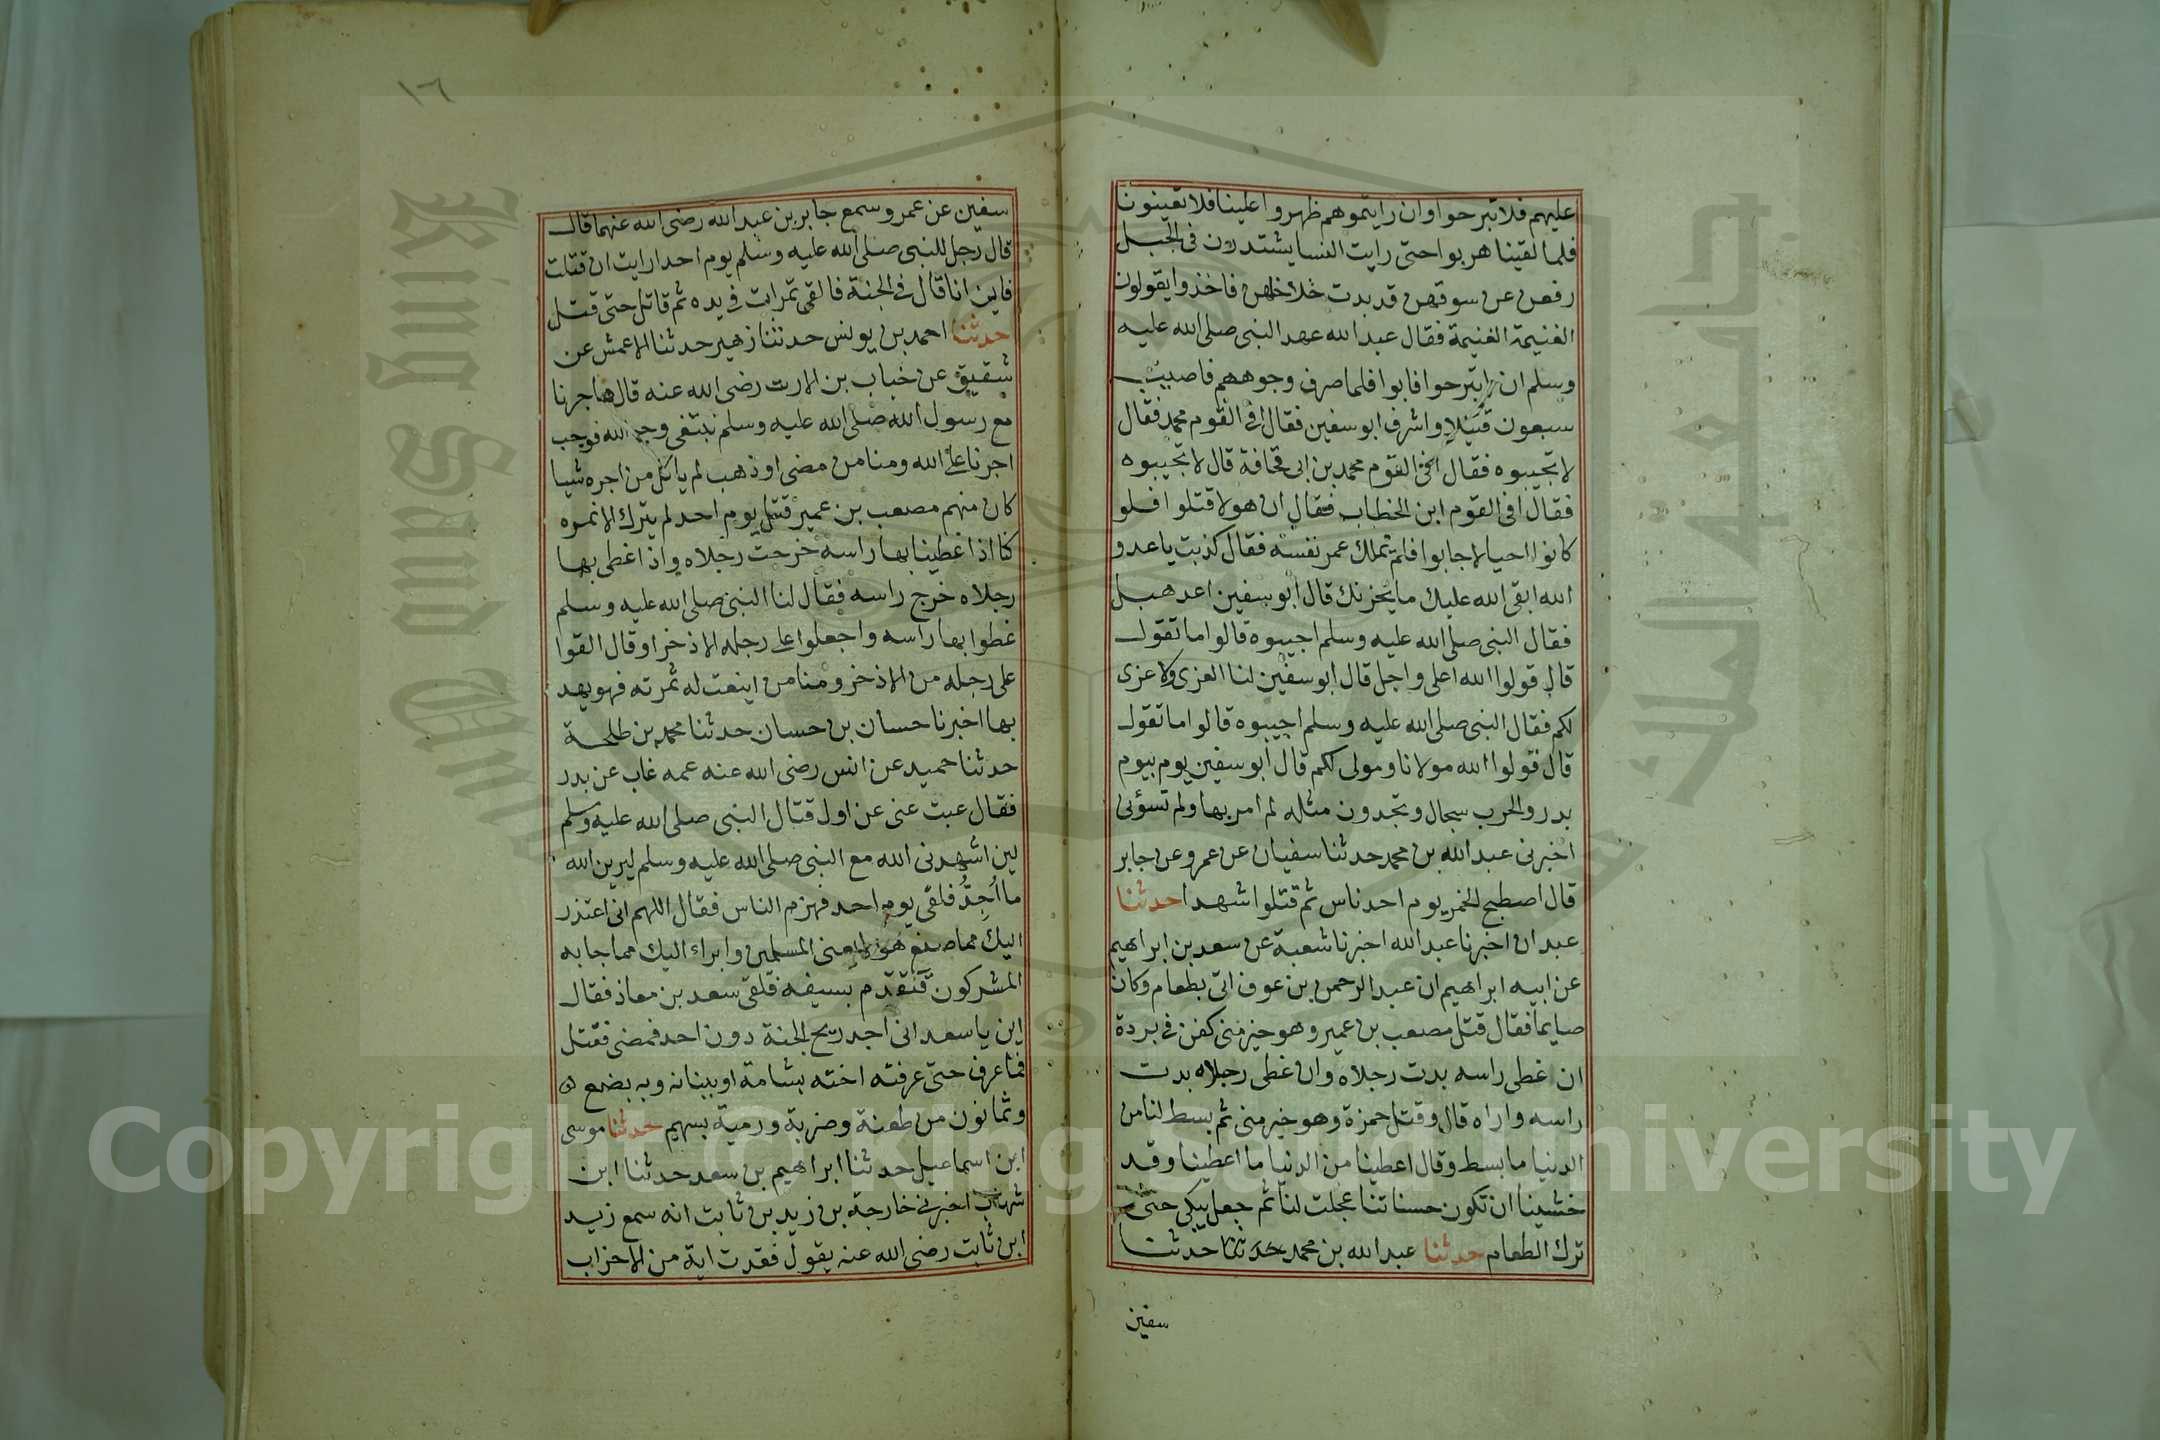 عليهم فلا تبرحوا وان رايتموهم ظهروا علينا فلا تعينونا
فلما لقينا هربوا حتى رايت النسا يشتددن في الجبل
رفعن عن سوقهن قد بدت خلاخلهن فاخذوا يقولون
الغنيمة الغنيمة فقال عبد الله عهد النبي صلى الله عليه
وسلم ان لا تبرحوا فابوا فلما صرف وجوههم فاصيب
سبعون قتيلا واشرف ابو سفين فقال افي القوم محمد فقال
لا تجيبوه فقال افي القوم محمد بن ابي قحافة قال لا تجيبوه
فقال افي القوم ابن الخطاب فقال ان هولا قتلوا فلو
كانوا احيا لاجابوا فلم تملك عمر نفسه فقال كذبت يا عدو
الله ابقى الله عليك ما يخزنك قال ابو سفين اعد هبل
فقال النبي صلى الله عليه وسلم اجيبوه قالوا ما تقول
قال قولوا الله اعلى واجل قال ابو سفين لنا العزى ولا عزى
لكم فقال النبي صلى الله عليه وسلم اجيبوه قالوا ما تقول
قال قولوا الله مولانا ومولى لكم قال ابو سفين يوم بيوم
بدر والحرب سجال وتجدون مثله لم امر بها ولم تسؤني
اخبرني عبد الله بن محمد حدثنا سفيان عن عمرو عن جابر
قال اصطبح الخمر يوم احد ناس ثم قتلوا شهدا حدثنا
عبدان اخبرنا عبد الله اخبرنا شعبة عن سعد بن ابراهيم
عن ابيه ابراهيم ان عبد الرحمن بن عوف اتي بطعام وكان
صايما فقال قتل مصعب بن عمير وهو خير مني كفن في بردة
ان غطى راسه بدت رجلاه وان غطى رجلاه بدت
راسه واراه قال وقتل حمزة وهو خير مني ثم بسط لنا من
الدنيا ما بسط وقال اعطينا من الدنيا ما اعطينا وقد
خشينا ان تكون حسناتنا عجلت لنا ثم جعل يبكي حتى
ترك الطعام حدثنا عبد الله بن محمد حدثنا حدثنا
سفين
١٦
سفين عن عمرو سمع جابر بن عبد الله رضى الله عنهما قال
قال رجل للنبي صلى الله عليه وسلم يوم احد ارايت ان قتلت
فاين انا قال في الجنة فالقى تمرات في يده ثم قاتل حتى قتل
حدثنا احمد بن يونس حدثنا زهير حدثنا الاعمش عن
شقيق عن خباب بن الارت رضى الله عنه قال هاجرنا
مع رسول الله صلى الله عليه وسلم نبتغي وجه الله فوجب
اجرنا على الله ومنا من مضى او ذهب لم ياكل من اجره شيا
كان منهم مصعب بن عمير قتل يوم احد لم يترك الا نمره
كنا اذا غطينا بها راسه خرجت رجلاه واذا غطي بها
رجلاه خرج راسه فقال لنا النبي صلى الله عليه وسلم
غطوا بها راسه واجعلوا على رجله الاذخر او قال القوا
على رجله من الاذخر ومنا من اينعت له ثمرته فهو يهد
بها اخبرنا حسان بن حسان حدثنا محمد بن طلحة
حدثنا حميد عن انس رضى الله عنه عمه غاب عن بدر
فقال غبت عني عن اول قتال النبي صلى الله عليه وسلم
لين اشهدني الله مع النبي صلى الله عليه وسلم ليرين الله
ما اُجِدُّ فلقي يوم احد فهزم الناس فقال اللهم اني اعتذر
اليك مما صنع هؤلا يعني المسلمين وابراء اليك مما جا به
المشركون فتقدم بسيفه فلقي سعد بن معاذ فقال
اين يا سعد اني اجد ريح الجنة دون احد فمضى فقتل
فما عرف حتى عرفته اخته بشامة او ببنانه وبه بضع
وثمانون من طعنة وضربة ورمية بسهم حدثنا موسى
ابن اسماعيل حدثنا ابراهيم بن سعد حدثنا ابن
شهاب اخبرني خارجة بن زيد بن ثابت انه سمع زيد
ابن ثابت رضى الله عنه يقول فقدت اية من الاحزاب
King Saud University
جامعة الملك سعود
Copyright © King Saud University